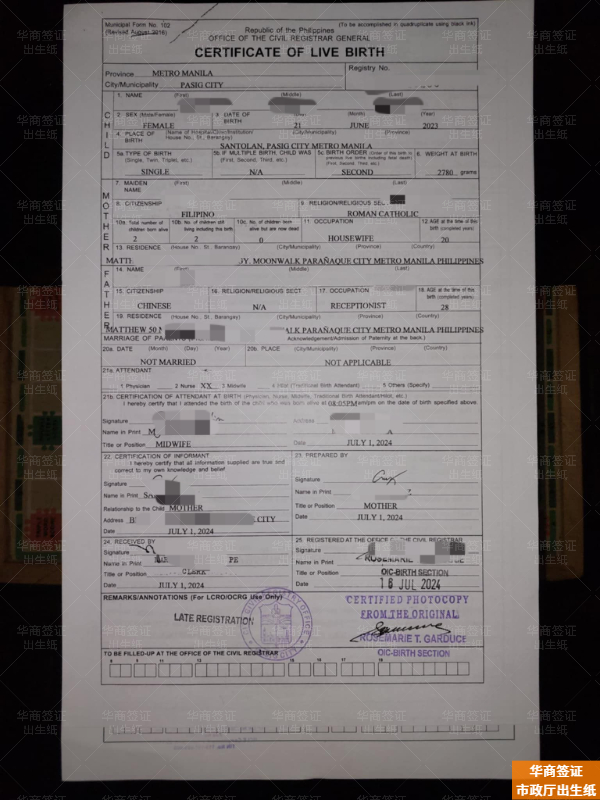 Municipal Form No. 102
(Revised August 2016)
(To be accomplished in quadruplicate using black ink)
Republic of the Philippines
OFFICE OF THE CIVIL REGISTRAR GENERAL
CERTIFICATE OF LIVE BIRTH
Province METRO MANILA
Registry No.
City/Municipality PASIG CITY
CHILD
1. NAME (First) (Middle) (Last)
2. SEX (Male/Female) FEMALE
3. DATE OF BIRTH (Month) (Year)
21 JUNE 2023
4. PLACE OF BIRTH (Name of Hospital/Clinic/Institution/ House No., St., Barangay) (City/Municipality) (Province)
SANTOLAN, PASIG CITY METRO MANILA
5a. TYPE OF BIRTH (Single, Twin, Triplet, etc.)
5b. IF MULTIPLE BIRTH, CHILD WAS (First, Second, Third, etc.)
5c. BIRTH ORDER
6. WEIGHT AT BIRTH
SINGLE N/A SECOND 2780 grams
MOTHER
7. MAIDEN NAME (First) (Middle) (Last)
8. CITIZENSHIP
9. RELIGION/RELIGIOUS SEC
FILIPINO ROMAN CATHOLIC
10a. Total number of children born alive
10b. No. of children still living including this birth
10c. No. of children born alive but are now dead
11. OCCUPATION
12. AGE at the time of this birth (completed years)
2 2 0 HOUSEWIFE 20
13. RESIDENCE (House No., St., Barangay) (City/Municipality) (Province) (Country)
MATT Y. MOONWALK PARAÑAQUE CITY METRO MANILA PHILIPPINES
FATHER
14. NAME (Middle) (Last)
15. CITIZENSHIP
16. RELIGION/RELIGIOUS SECT
17. OCCUPATION
18. AGE at the time of this birth (completed years)
CHINESE N/A RECEPTIONIST 28
19. RESIDENCE (House No., St., Barangay) (City/Municipality) (Province) (Country)
MATTHEW 50 ALK PARAÑAQUE CITY METRO MANILA PHILIPPINES
MARRIAGE OF PA Acknowledgement/Admission of Paternity at the back.)
20a. DATE (Month) (Day) (Year)
20b. PLACE (City/Municipality) (Province) (Country)
NOT MARRIED NOT APPLICABLE
21a. ATTENDANT
1 Physician 2 Nurse XX 3 Midwife 4 Hilot (Traditional Birth Attendant) 5 Others (Specify)
21b. CERTIFICATION OF ATTENDANT AT BIRTH (Physician, Nurse, Midwife, Traditional Birth Attendant/Hilot, etc.)
I hereby certify that I attended the birth of the child who was born alive at 08:05PM am/pm on the date of birth specified above.
Signature
Address
Name in Print M
Title or Position MIDWIFE
Date JULY 1, 2024
22. CERTIFICATION OF INFORMANT
I hereby certify that all information supplied are true and correct to my own knowledge and belief.
Signature
Name in Print
Relationship to the Child MOTHER
Address CITY
Date JULY 1, 2024
23. PREPARED BY
Signature
Name in Print
Title or Position MOTHER
Date JULY 1, 2024
24. RECEIVED BY
Signature
Name in Print PE
Title or Position CLERK
Date JULY 1, 2024
25. REGISTERED AT THE OFFICE OF THE CIVIL REGISTRAR
Signature
Name in Print ROSEMARIE
Title or Position OIC-BIRTH SECTION
Date 18 JUL 2024
REMARKS/ANNOTATIONS (For LCRO/OCRG Use Only)
LATE REGISTRATION
CERTIFIED PHOTOCOPY
FROM THE ORIGINAL
ROSEMARIE T. GARDUCE
OIC-BIRTH SECTION
TO BE FILLED-UP AT THE OFFICE OF THE CIVIL REGISTRAR
华商签证
出生纸
华商签证
市政厅出生纸